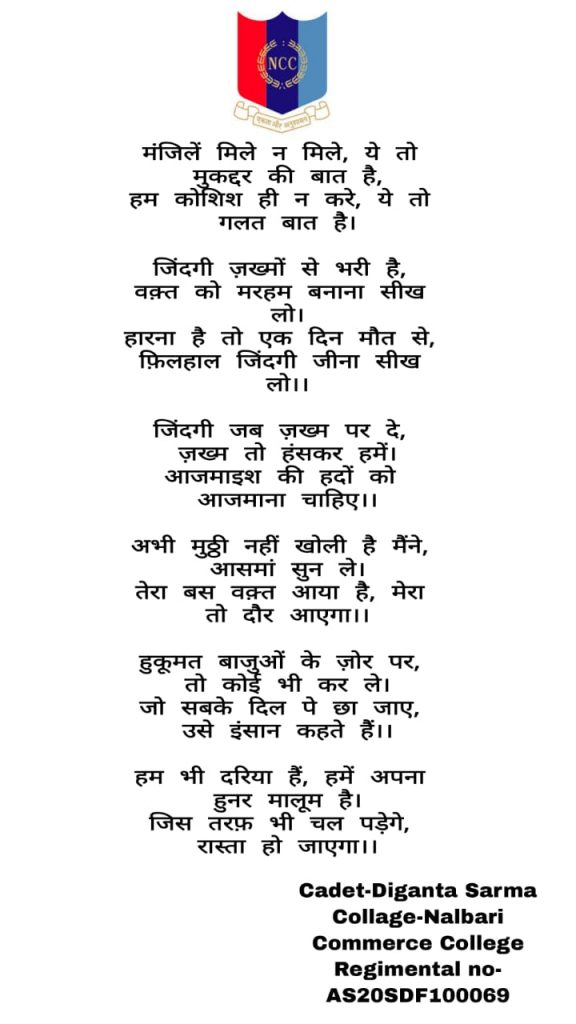 NCC
एकता और अनुशासन
मंजिलें मिले न मिले, ये तो
मुकद्दर की बात है,
हम कोशिश ही न करे, ये तो
गलत बात है।
जिंदगी ज़ख्मों से भरी है,
वक़्त को मरहम बनाना सीख
लो।
हारना है तो एक दिन मौत से,
फ़िलहाल जिंदगी जीना सीख
लो।।
जिंदगी जब ज़ख्म पर दे,
ज़ख्म तो हंसकर हमें।
आजमाइश की हदों को
आजमाना चाहिए।।
अभी मुठ्ठी नहीं खोली है मैंने,
आसमां सुन ले।
तेरा बस वक़्त आया है, मेरा
तो दौर आएगा।।
हुकूमत बाजुओं के ज़ोर पर,
तो कोई भी कर ले।
जो सबके दिल पे छा जाए,
उसे इंसान कहते हैं।।
हम भी दरिया हैं, हमें अपना
हुनर मालूम है।
जिस तरफ़ भी चल पड़ेगे,
रास्ता हो जाएगा।।
Cadet-Diganta Sarma
Collage-Nalbari
Commerce College
Regimental no-
AS20SDF100069